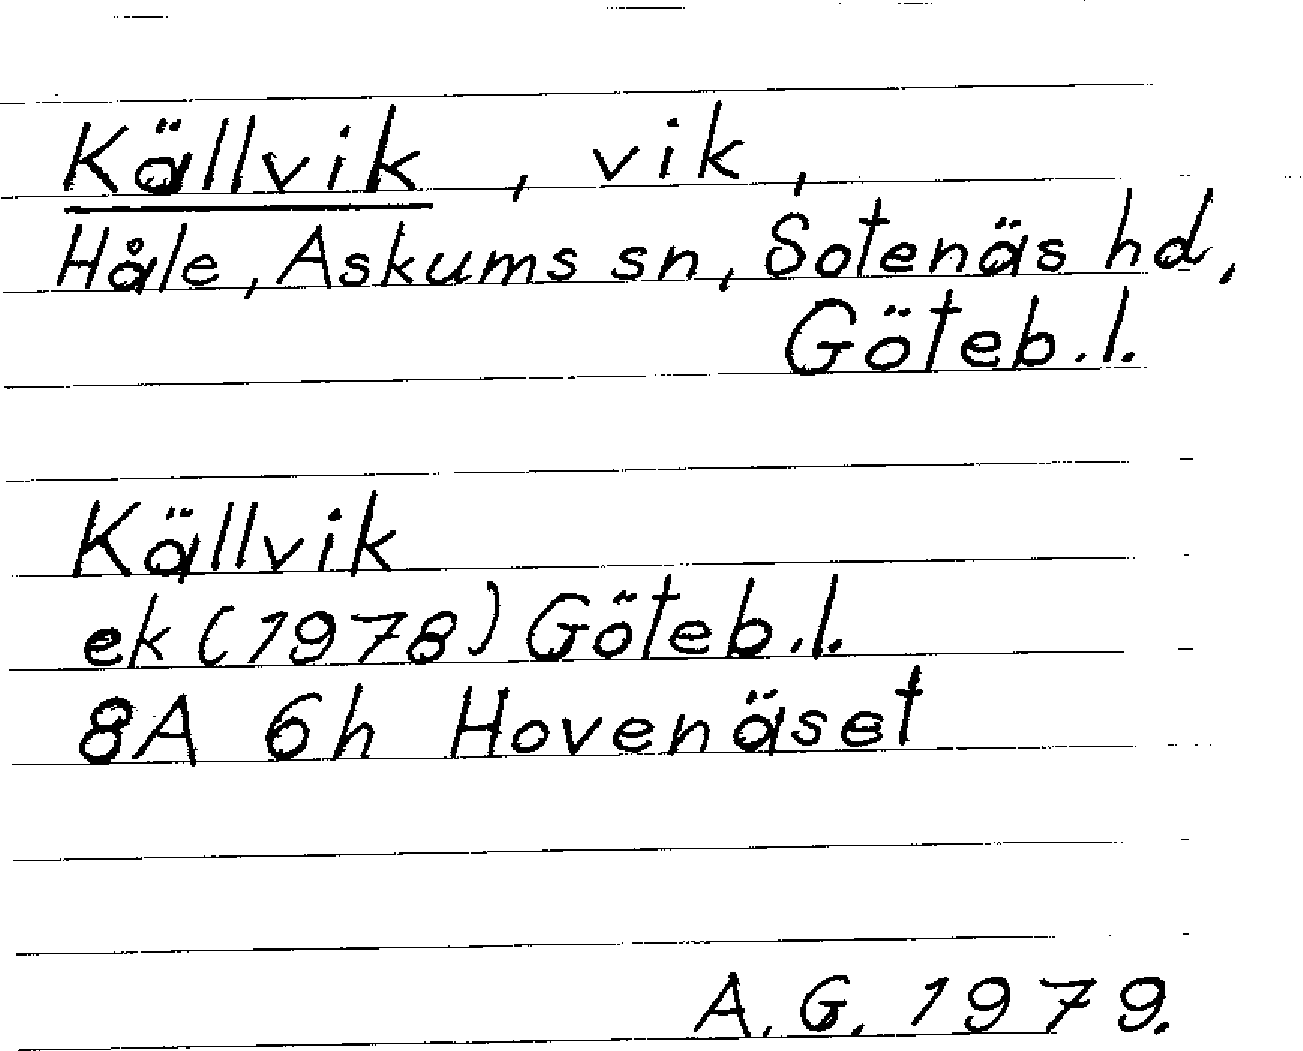 Källvik, vik,
Håle, Askums sn, Sotenäs hd,
Göteb.l.
Källvik
ek (1978) Göteb.l.
8A 6h Hovenäset
A.G. 1979.